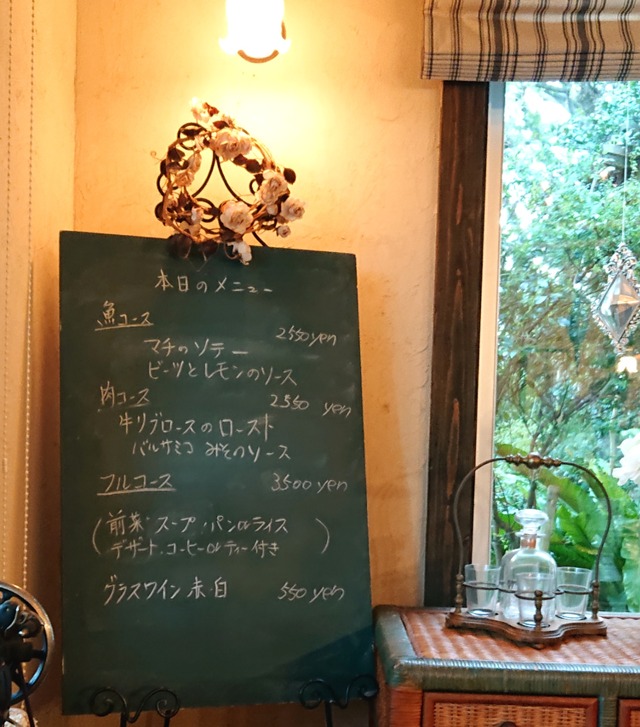 本日のメニュー
魚コース 2550yen
マチのソテー
ビーツとレモンのソース
肉コース 2550 yen
牛リブロースのロースト
バルサミコ みそのソース
フルコース 3500yen
(前菜・スープ・パンorライス
デザート・コーヒーorティー付き)
グラスワイン 赤・白 550yen